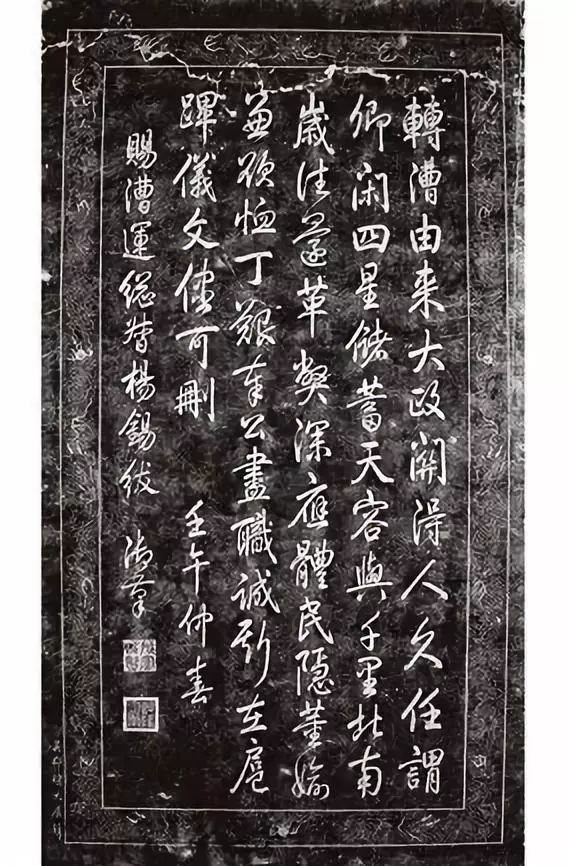 轉漕由来大政關得人久任謂
卿閑四星儲蓄天容與千里北南
歲往還革獘深應體民隠董媮
兼欲恤丁艱奉公盡職誠斯在扈
蹕儀文儘可刪 壬午仲春
賜漕運総督楊錫紱 御筆